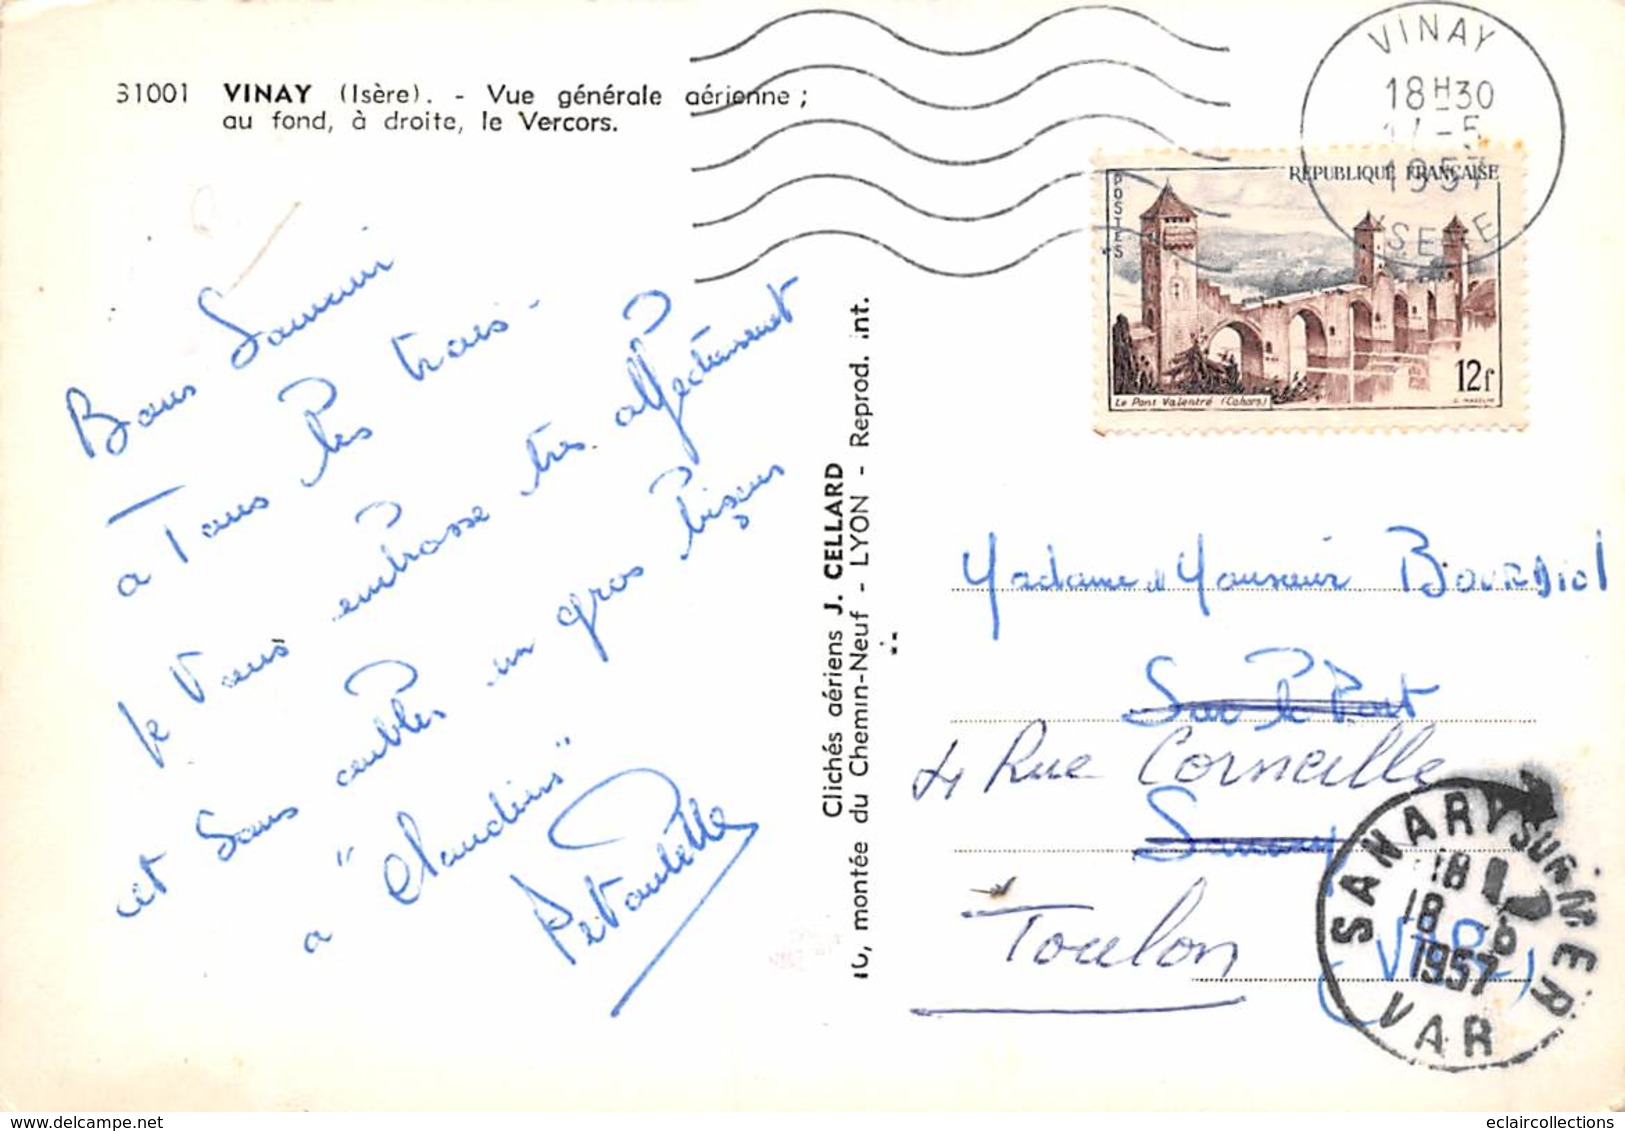 31001 VINAY (Isère). - Vue générale aérienne ;
au fond, à droite, le Vercors.
VINAY
18H30
17-5
1957
ISERE
REPUBLIQUE FRANÇAISE
POSTES
12f
Le Pont Valentré (Cahors)
Bons Souvenir
a Tous les trois -
Je vous embrasse très affectueusement
et vous
un gros bisous
a "Claudius"
Clichés aériens J. CELLARD
10, montée du Chemin-Neuf - LYON - Reprod. int.
Madame et Monsieur BOURDIOL
Sur le Port
4 Rue Corneille
Sanary
Toulon
(VAR)
SANARY SUR MER
18
18 -5
1957
VAR
eclaircollections